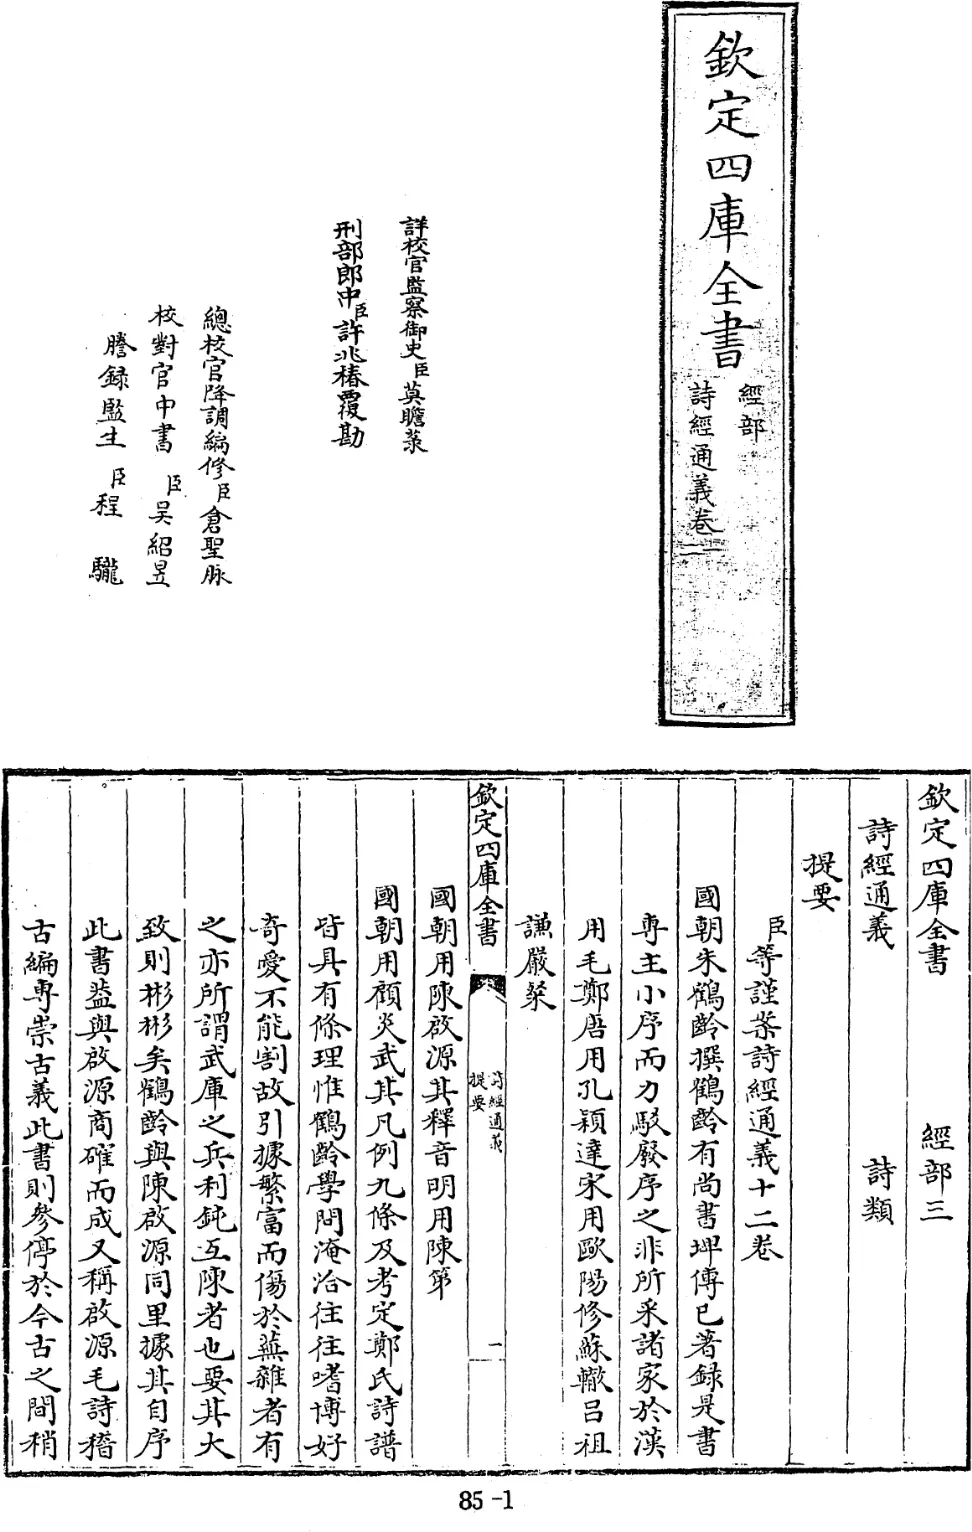 欽定四庫全書
經部
詩經通義卷一
詳校官監察御史臣莫瞻菉
刑部郎中臣許兆椿覆勘
總校官降調編修臣倉聖脉
校對官中書臣吳紹昱
謄錄監生臣程驪
欽定四庫全書 經部三
詩經通義 詩類
提要
臣等謹案詩經通義十二卷
國朝朱鶴齡撰鶴齡有尚書埤傳已著録是書
專主小序而力駁廢序之非所采諸家於漢
用毛鄭唐用孔穎達宋用歐陽修蘇轍吕祖
謙嚴粲
欽定四庫全書
詩經通義
提要
一
國朝用陳啟源其釋音明用陳第
國朝用顧炎武其凡例九條及考定鄭氏詩譜
皆具有條理惟鶴齡學問淹洽往往嗜博好
奇愛不能割故引據繁富而傷於蕪雜者有
之亦所謂武庫之兵利鈍互陳者也要其大
致則彬彬矣鶴齡與陳啟源同里據其自序
此書葢與啟源商確而成又稱啟源毛詩稽
古編専崇古義此書則參停於今古之間稍
85-1